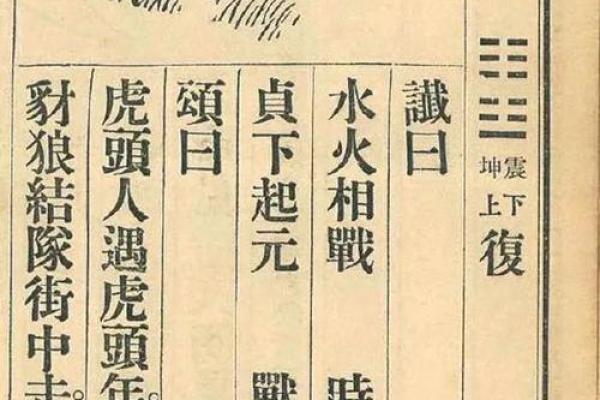 震下
坤上
復
讖曰
水火相戰 時
貞下起元 獸
頌曰
虎頭人遇虎頭年。
豺狼結隊街中走。